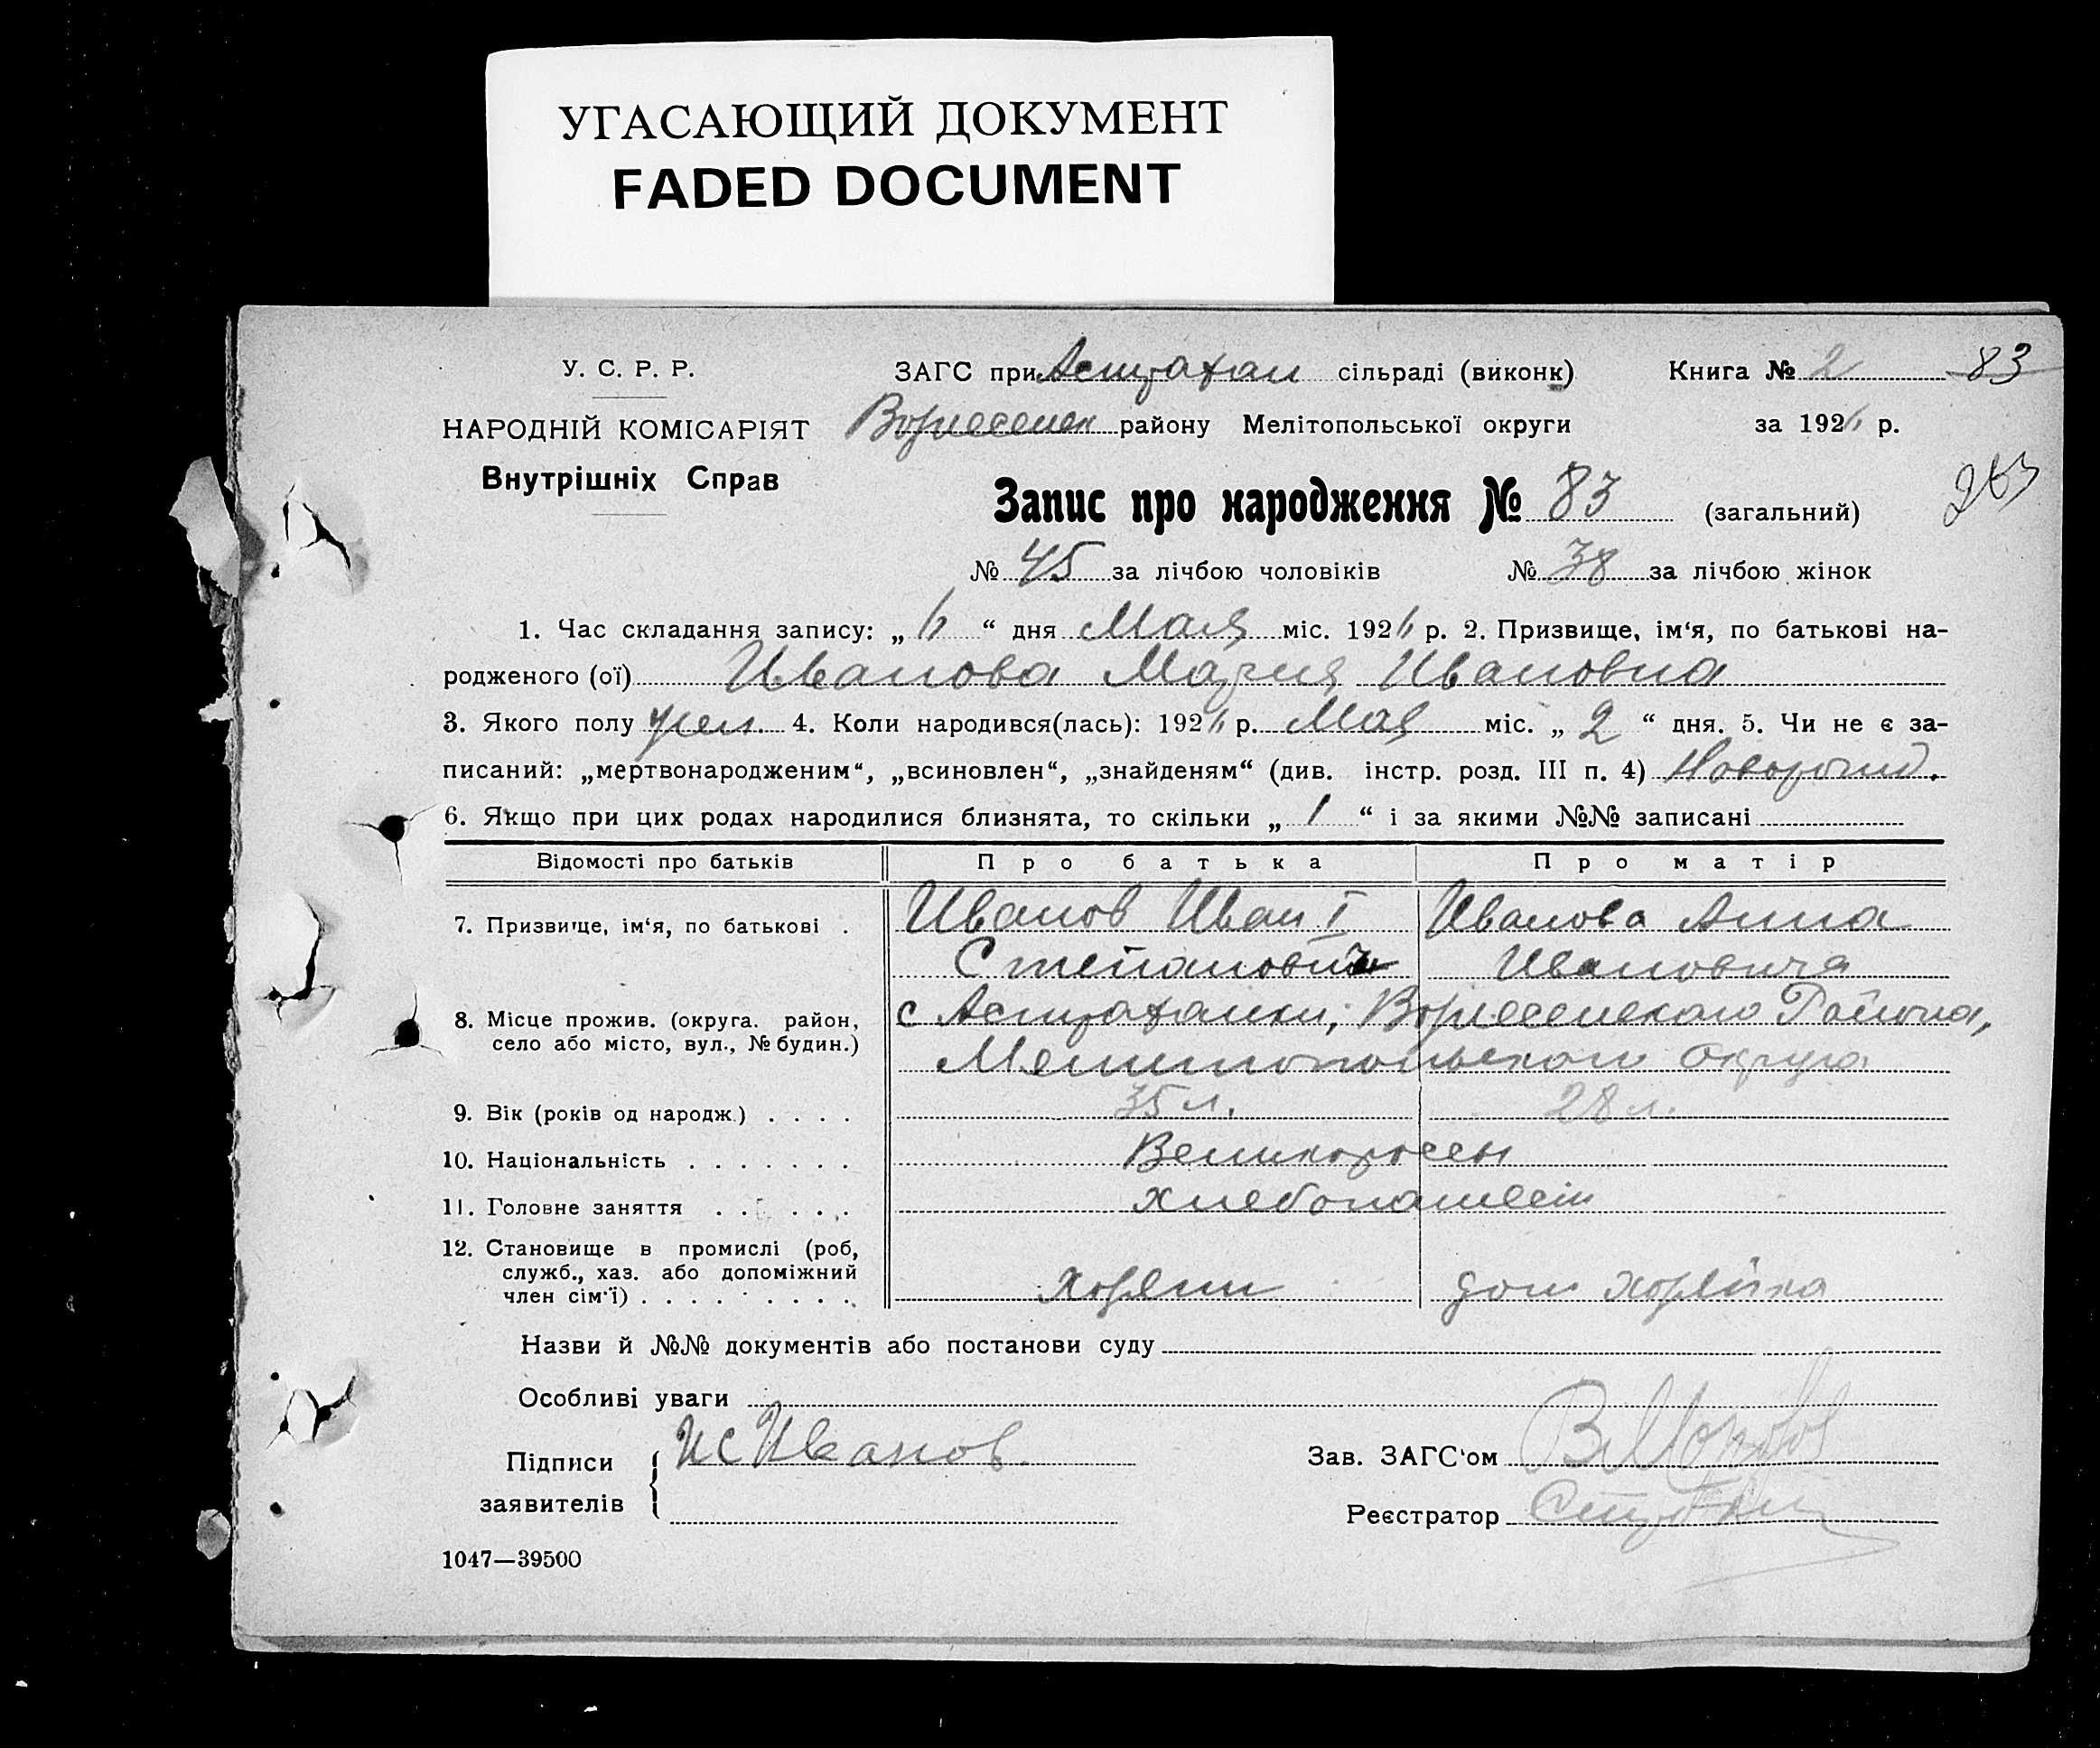 УГАСАЮЩИЙ ДОКУМЕНТ
FADED DOCUMENT
У. С. Р. Р.
НАРОДНІЙ КОМІСАРІЯТ
Внутрішніх Справ
ЗАГС при Астрахан сільраді (виконк)
Вознесенск району Мелітопольської округи
Книга № 2 83
за 1926 р.
Запис про народження № 83 (загальний)
263
№ 45 за лічбою чоловіків № 38 за лічбою жінок
1. Час складання запису: „ 6 “ дня Мая міс. 1926 р. 2. Призвище, ім‘я, по батькові на-
родженого (ої) Иванова Мария Ивановна
3. Якого полу жен. 4. Коли народився(лась): 1926 р. Мая міс. „ 2 “ дня. 5. Чи не є за-
писаний: „мертвонародженим“, „всиновлен“, „знайденям“ (див. інстр. розд. III п. 4) Новорожд.
6. Якщо при цих родах народилися близнята, то скільки „ 1 “ і за якими №№ записані
Відомості про батьків Про батька Про матір
7. Призвище, ім‘я, по батькові . Иванов Иван I Иванова Анна
Степанович Ивановича
8. Місце прожив. (округа. район, село або місто, вул., № будин.) с Астраханки, Вознесенского Района,
Мелитопольского округа
9. Вік (років од народж.) . . . . 35 л. 28 л.
10. Національність . . . . . . . Великоросы
11. Головне заняття . . . . . . Хлебопашест
12. Становище в промислі (роб,
служб., хаз. або допоміжний
член сім‘ї) . . . . . . . . . . Хозяин дом хозяйка
Назви й №№ документів або постанови суду
Особливі уваги
Підписи заявителів { ИС Иванов
Зав. ЗАГС‘ом
Реєстратор
1047—39500